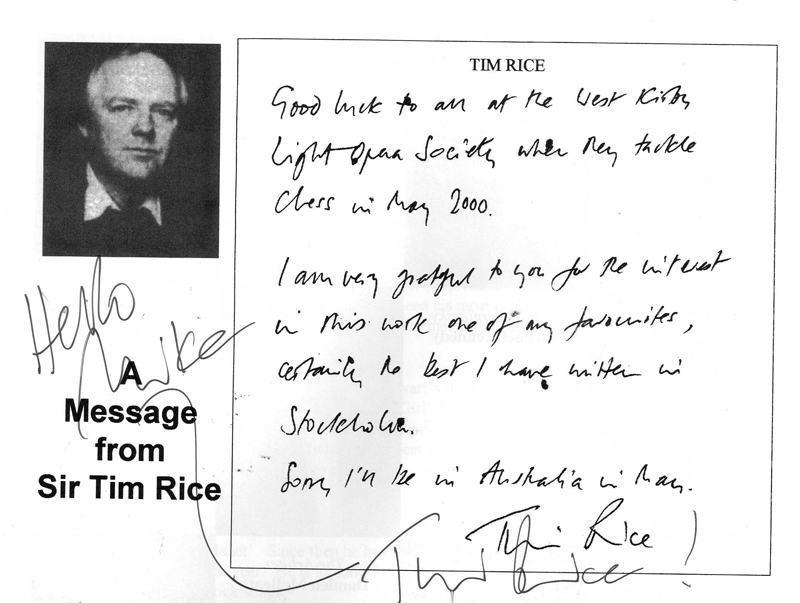 TIM RICE
Good luck to all at the West Kirby
Light Opera Society when they tackle
Chess in May 2000.
I am very grateful to you for the interest
in this work one of my favourites,
certainly the best I have written in
Stockholm.
Sorry I'll be in Australia in May.
Tim Rice
Hello
A
Message
from
Sir Tim Rice
Tim Rice!